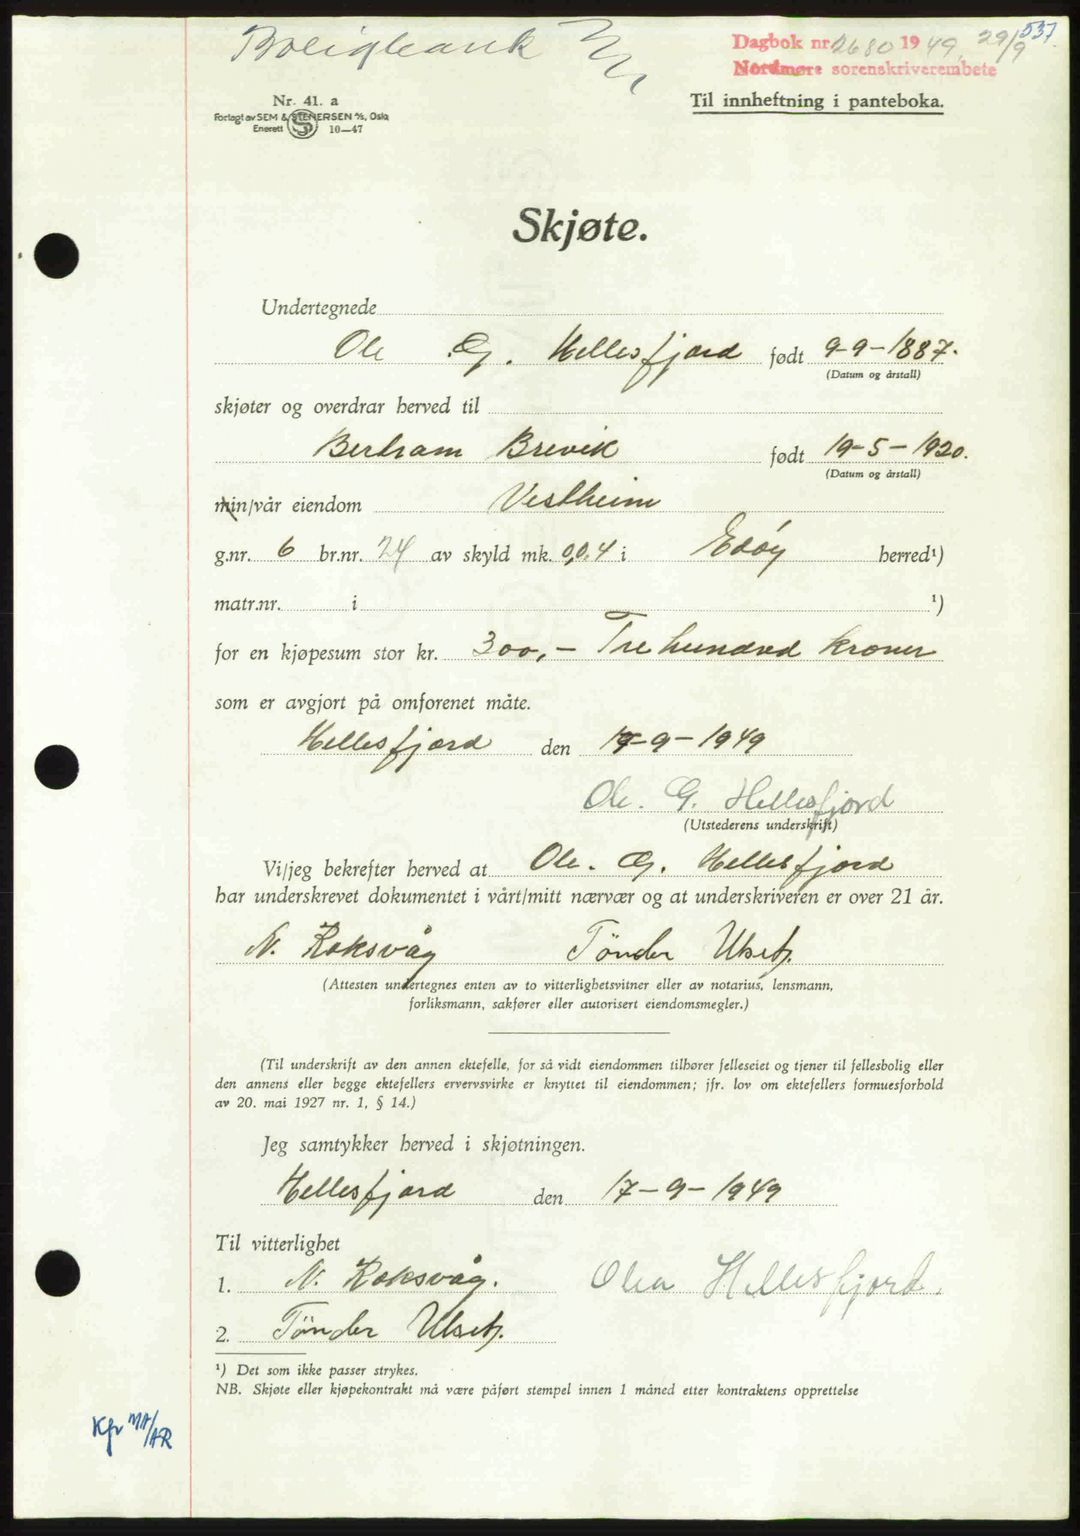 537.
Boligbank
Dagbok nr. 2680 1949, 29/9
Nordmøre sorenskriverembete
Til innheftning i panteboka.
Nr. 41. a
Forlagt av SEM & STENERSEN A/S, Oslo
Enerett 10—47
Skjøte.
Undertegnede
Ole G. Hellesfjord født 9-9-1887.
(Datum og årstall)
skjøter og overdrar herved til
Bertram Brevik født 19-5-1920.
(Datum og årstall)
min/vår eiendom Vestheim
g.nr. 6 br.nr. 24 av skyld mk. 0,04 i Edöy herred¹)
matr.nr. i ¹)
for en kjøpesum stor kr. 300,- Tre hundred kroner
som er avgjort på omforenet måte.
Hellesfjord den 17-9-1949
Ole. G. Hellesfjord
(Utstederens underskrift)
Vi/jeg bekrefter herved at Ole. G. Hellesfjord
har underskrevet dokumentet i vårt/mitt nærvær og at underskriveren er over 21 år.
N. Roksvåg Tönder Ulset.
(Attesten undertegnes enten av to vitterlighetsvitner eller av notarius, lensmann,
forliksmann, sakfører eller autorisert eiendomsmegler.)
(Til underskrift av den annen ektefelle, for så vidt eiendommen tilhører felleseiet og tjener til fellesbolig eller
den annens eller begge ektefellers ervervsvirke er knyttet til eiendommen; jfr. lov om ektefellers formuesforhold
av 20. mai 1927 nr. 1, § 14.)
Jeg samtykker herved i skjøtningen.
Hellesfjord den 17-9-1949
Til vitterlighet
1. N. Roksvåg. Olea Hellesfjord.
2. Tönder Ulset.
¹) Det som ikke passer strykes.
NB. Skjøte eller kjøpekontrakt må være påført stempel innen 1 måned etter kontraktens opprettelse
Kfr MA/AR